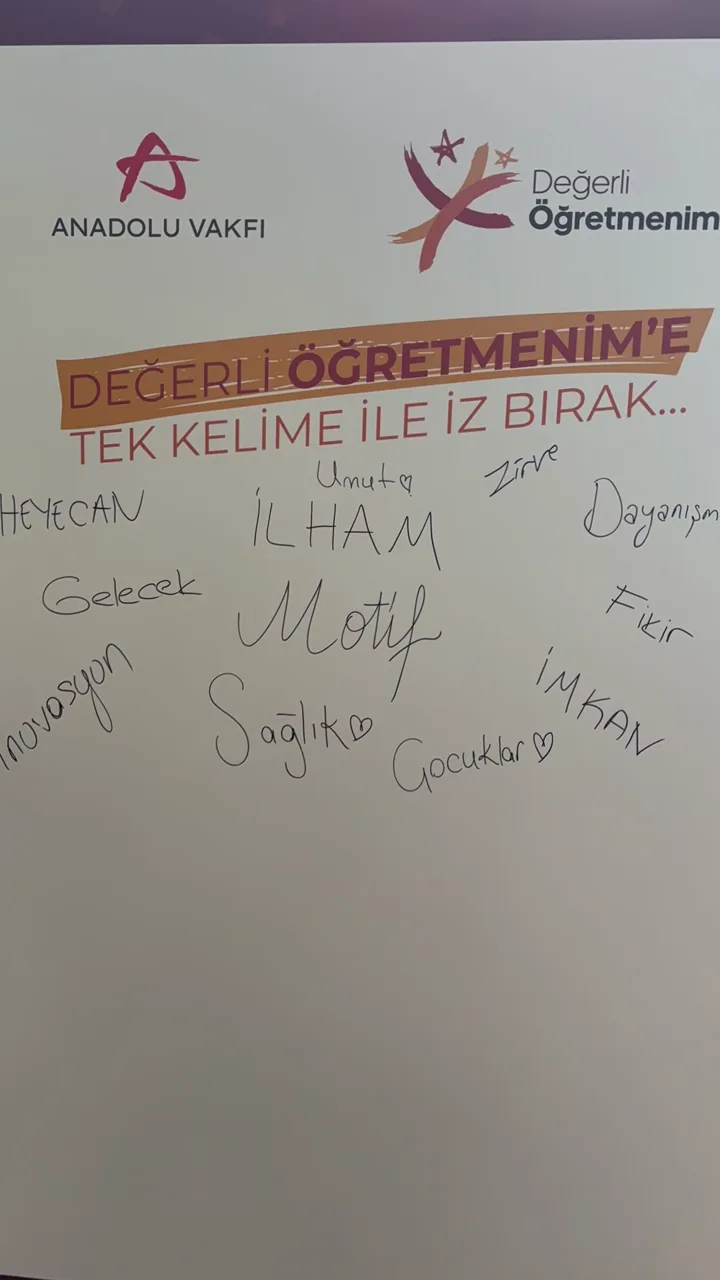 ANADOLU VAKFI
Değerli
Öğretmenim
DEĞERLİ ÖĞRETMENİM'E
TEK KELİME İLE İZ BIRAK...
Umut
Zirve
HEYECAN
İLHAM
Dayanışm
Gelecek
Motif
Fikir
İnovasyon
Sağlık
İMKAN
Çocuklar